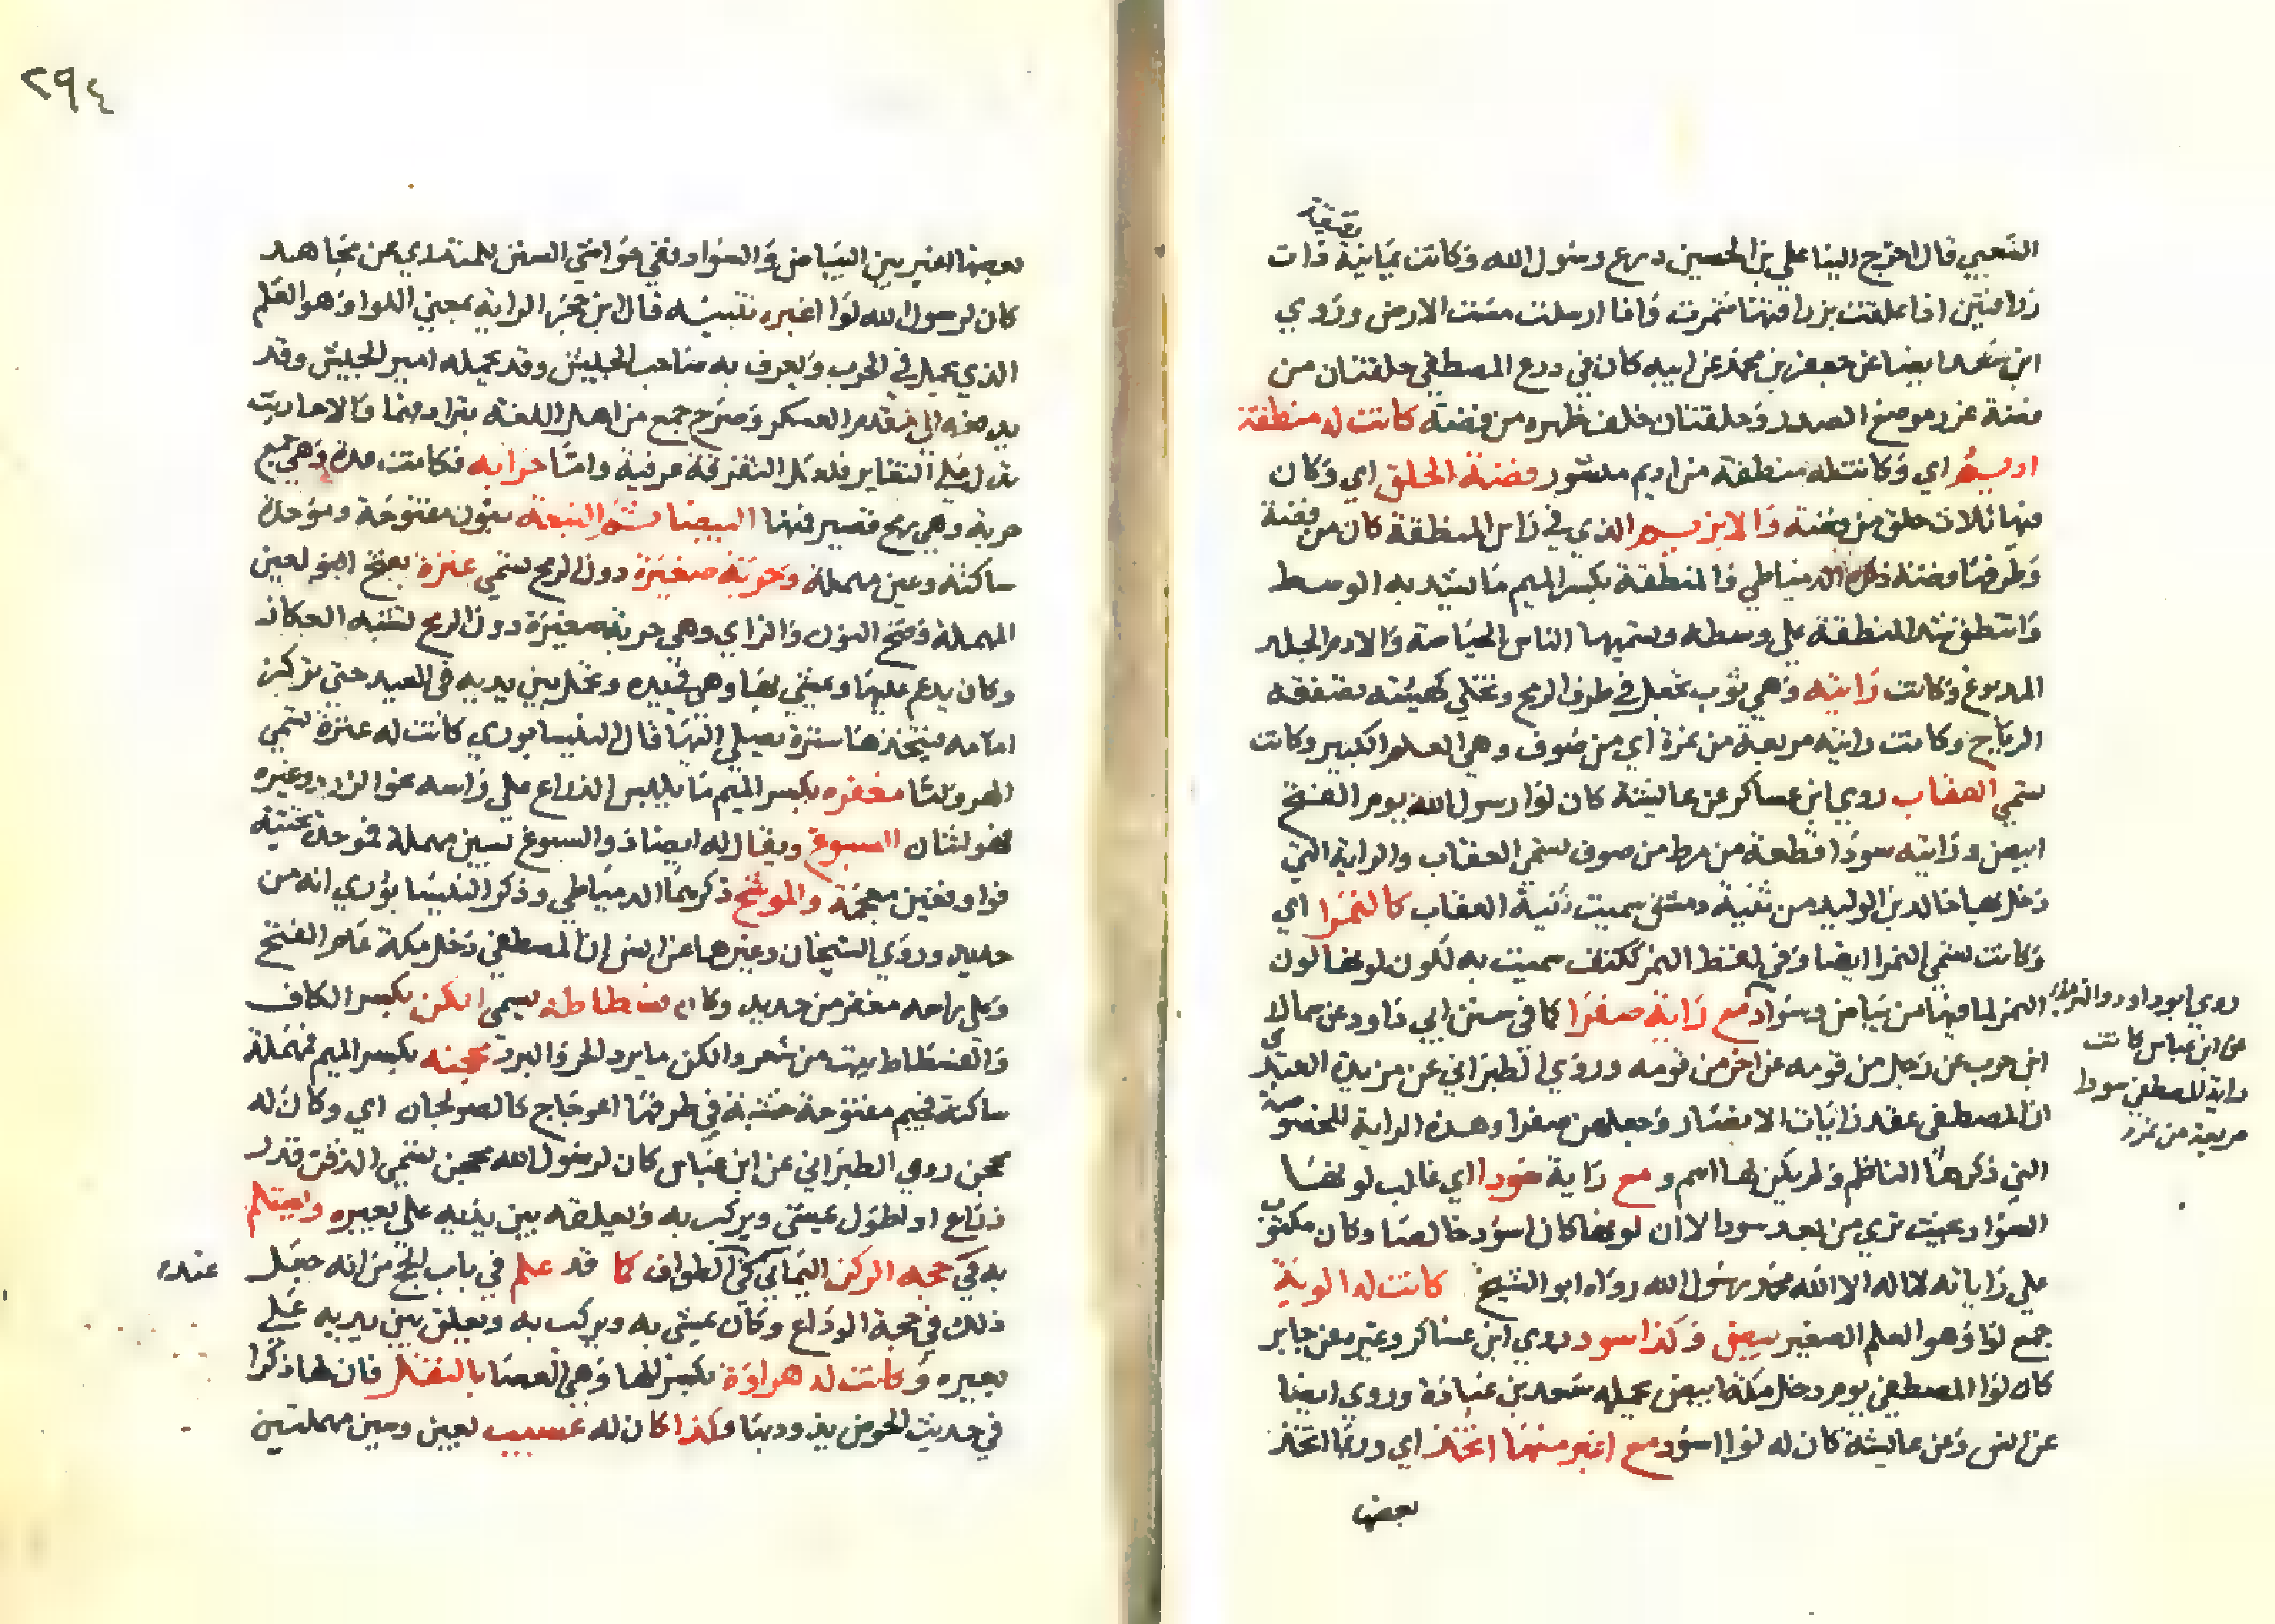 رقيقة
الشعبي قال اخرج الينا علي بن الحسين درع رسول الله وكانت يمانية ذات
زرافتين اذا علقت بزرافتها شمرت واذا ارسلت مست الارض وروي
ابن سعد ايضا عن جعفر بن محمد عن ابيه كان في درع المصطفي حلقتان من
فضة عند موضع الصدر وحلقتان خلف ظهره من فضة كانت له منطقة
اديم اي وكانت له منطقة من اديم مبشور فضة الحلق اي وكان
فيها ثلاث حلق من فضة والابزيم الذي في راس المنطقة كان من فضة
وطرفها فضة ذكره الدمياطي والمنطقة بكسر الميم ما يشد به الوسط
وانتطق شد المنطقة علي وسطه وتسميها الناس الحياصة والادم الجلد
المدبوغ وكانت رايته وهي ثوب تجعل في طرف الرمح وتخلي كهيئته تصفقه
الرياح وكانت رايته مربعة من نمرة اي من صوف وهي العلم الكبير وكانت
تسمي العقاب روي ابن عساكر عن عائشة كان لوا رسول الله يوم الفتح
ابيض ورايته سودا قطعة من مرط من صوف تسمي العقاب والراية التي
دخل بها خالد بن الوليد من ثنية دمشق سميت ثنية العقاب كالنمرا اي
وكانت تسمي النمرا ايضا وفي لفظ النمر ككتف سميت به لكون لونها لون
النمر لما فيها من بياض وسواد مع راية صفرا كما في سنن ابي داود عن سماك
ابن حرب عن رجل من قومه عن اخر من قومه وروي الطبراني عن مزيدة العبدي
ان المصطفي عقد رايات الانصار وجعلهن صفرا وهذه الراية المخصوصة
التي ذكرها الناظم ولم يكن لها اسم و مع راية سودا اي غالب لونها
السواد بحيث تري من بعد سودا لا ان لونها كان اسود خالصا وكان مكتوب
علي راياته لا اله الا الله محمد رسول الله رواه ابو الشيخ كانت له الوية
جمع لوا وهو العلم الصغير بيض وكذا سود روي ابن عساكر وغيره عن جابر
كان لوا المصطفي يوم دخل مكة ابيض يحمله سعد بن عبادة وروي ايضا
عن انس وعن عايشة كان له لوا اسود مع اغبر منها اتخذ اي وربما اتخذ
بعضها
روي ابو داود والترمذي
عن ابن عباس كانت
راية المصطفي سودا
مربعة من نمرة
٢٩٤
بعضها اغبر بين البياض والسواد ففي حواشي السنن للمنذري عن مجاهد
كان لرسول الله لوا اغبر تنبيه قال ابن حجر الراية بمعني اللوا وهو العلم
الذي يحمل في الحرب ويعرف به صاحب الجيش وقد يحمله امير الجيش وقد
يدفعه الي مقدم العسكر وصرح جمع من اهل اللغة بترادفهما والاحاديث
تدل علي التغاير فلعل التفرقة عرفية واما حرابه فكانت عدة وهي جمع
حربة وهي رمح قصير فمنها البيضا ثم النبعة بنون مفتوحة وموحدة
ساكنة وعين مهملة وحربة صغيرة دون الرمح تسمي عنزة بفتح العين
المهملة وفتح النون والزاي وهي حربة صغيرة دون الرمح تشبه العكاز
وكان يدعم عليها ويمشي بها وهي في يده وتحمل بين يديه في العيد حتي تركز
امامه فيتخذها سترة يصلي اليها قال النيسابوري كانت له عنزة تسمي
الهر واما مغفره بكسر الميم ما يلبس الدراع علي راسه من الزرد وغيره
فهو اثنان السبوغ ويقال له ايضا ذو السبوغ بسين مهملة فموحدة تحتية
فواو فغين معجمة والموشح ذكرهما الدمياطي وذكر النيسابوري انه من
حديد وروي الشيخان وغيرهما عن انس ان المصطفي دخل مكة عام الفتح
وعلي راسه مغفر من حديد وكان فسطاطه يسمي الكن بكسر الكاف
والفسطاط بيت من شعر والكن ما يرد الحر والبرد محجنه بكسر الميم فمهملة
ساكنة فجيم مفتوحة خشبة في طرفها اعوجاج كالصولجان اي وكان له
محجن روي الطبراني عن ابن عباس كان لرسول الله محجن تسمي الدقن قدر
ذراع او اطول يمشي ويركب به ويعلقه بين يديه علي بعيره واستلم
به في حجه الركن اليماني في الطواف كما قد علم في باب الحج من انه جعل عنده
ذلك في حجة الوداع وكان يمشي به ويركب به ويعلق بين يديه علي
بعيره وكانت له هراوة بكسر الها وهي العصا بالنقل فان لها ذكرا
في حديث الحوض يذود بها وكذا كان له عسيب بعين وسين مهملتين